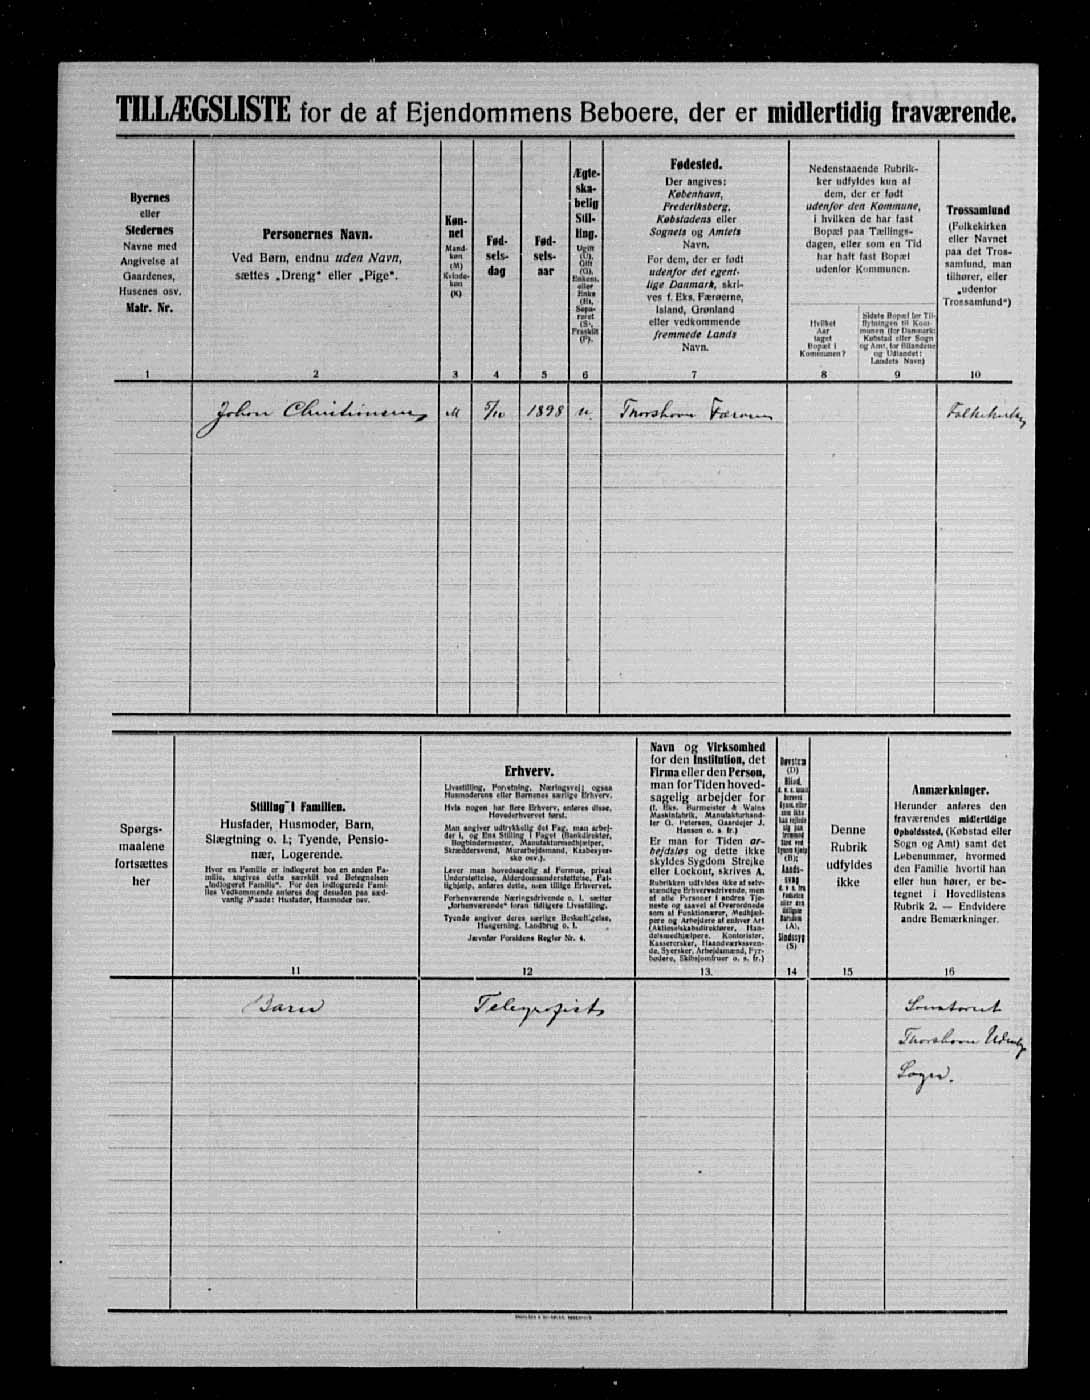 TILLÆGSLISTE for de af Ejendommens Beboere, der er midlertidig fraværende.
Byernes
eller
Stedernes
Navne med
Angivelse af
Gaardenes,
Husenes osv.
Matr. Nr.
Personernes Navn.
Ved Børn, endnu uden Navn,
sættes „Dreng" eller „Pige".
Køn-
net
Mand-
køn
(M)
Kvinde-
køn
(K)
Fød-
sels-
dag
Fød-
sels-
aar
Ægte-
ska-
belig
Stil-
ling.
Ugift
(U),
Gift
(G),
Enkem.
eller
Enke
(E),
Sepa-
reret
(S),
Fraskilt
(F).
Fødested.
Der angives:
København,
Frederiksberg,
Købstadens eller
Sognets og Amtets
Navn.
For dem, der er født
udenfor det egent-
lige Danmark, skri-
ves f. Eks. Færøerne,
Island, Grønland
eller vedkommende
fremmede Lands
Navn.
Nedenstaaende Rubrik-
ker udfyldes kun af
dem, der er født
udenfor den Kommune,
i hvilken de har fast
Bopæl paa Tællings-
dagen, eller som en Tid
har haft fast Bopæl
udenfor Kommunen.
Hvilket
Aar
taget
Bopæl i
Kommunen?
Sidste Bopæl før Til-
flytningen til Kom-
munen (for Danmark:
Købstad eller Sogn
og Amt, for Bilandene
og Udlandet:
Landets Navn)
Trossamfund
(Folkekirken
eller Navnet
paa det Tros-
samfund, man
tilhører, eller
„udenfor
Trossamfund")
1 2 3 4 5 6 7 8 9 10
M 5/10 1898 u. Thorshavn Færøerne
Spørgs-
maalene
fortsættes
her
Stilling i Familien.
Husfader, Husmoder, Barn,
Slægtning o. l.; Tyende, Pensio-
nær, Logerende.
Hvor en Familie er indlogeret hos en anden Fa-
milie, angives dette særskilt ved Betegnelsen
„indlogeret Familie". For den indlogerede Fami-
lies Vedkommende anføres dog desuden paa sæd-
vanlig Maade: Husfader, Husmoder osv.
Erhverv.
Livsstilling, Forretning, Næringsvej; ogsaa
Husmoderens eller Børnenes særlige Erhverv.
Hvis nogen har flere Erhverv, anføres disse,
Hovederhvervet først.
Man angiver udtrykkelig det Fag, man arbej-
der i, og Ens Stilling i Faget (Bankdirektør,
Bogbindermester, Manufakturmedhjælper,
Skræddersvend, Murarbejdsmand, Kaabesyer-
ske osv.).
Lever man hovedsagelig af Formue, privat
Understøttelse, Alderdomsunderstøttelse, Fat-
tighjælp, anføres dette, men tillige Erhvervet.
Forhenværende Næringsdrivende o. l. sætter
„forhenværende" foran tidligere Livsstilling.
Tyende angiver deres særlige Beskæftigelse,
Husgerning, Landbrug o. l.
Jævnfør Forsidens Regler Nr. 4.
Navn og Virksomhed
for den Institution, det
Firma eller den Person,
man for Tiden hoved-
sagelig arbejder for
(f. Eks. Burmeister & Wains
Maskinfabrik, Manufakturhand-
ler G. Petersen, Gaardejer J.
Hansen o. s. fr.)
Er man for Tiden ar-
bejdsløs og dette ikke
skyldes Sygdom Strejke
eller Lockout, skrives A.
Rubrikken udfyldes ikke af selv-
stændige Erhvervsdrivende, men
af alle Personer i andres Tje-
neste og saavel af Overordnede
som af Funktionærer, Medhjæl-
pere og Arbejdere af enhver Art
(Aktieselskabsdirektører, Han-
delsmedhjælpere, Kontorister,
Kassererske, Haandværkssven-
de, Syersker, Arbejdsmænd, Fyr-
bødere, Skibsjomfruer o. s. fr.)
Døvstum
(D)
Blind,
(B);
Aands-
svag
(A),
Sindssyg
(S)
Denne
Rubrik
udfyldes
ikke
Anmærkninger.
Herunder anføres den
fraværendes midlertidige
Opholdssted, (Købstad eller
Sogn og Amt) samt det
Løbenummer, hvormed
den Familie hvortil han
eller hun hører, er be-
tegnet i Hovedlistens
Rubrik 2. — Endvidere
andre Bemærkninger.
11 12 13. 14 15 16
Barn Telegrafist
Thorshavn
Sogn.